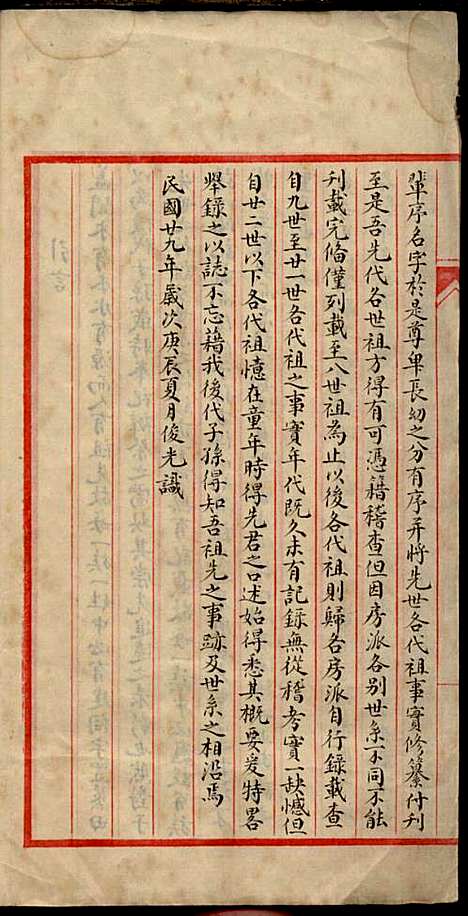 輩序名字於是尊卑長幼之分有序并將先世各代祖事實修纂付刊
至是吾先代各世祖方得有可憑籍稽查但因房派各別世系不同不能
刊載完僃僅列載至八世祖為止以後各代祖則歸各房派自行錄載查
自九世至廿一世各代祖之事實年代既久未有記錄無從稽考實一缺憾但
自廿二世以下各代祖憶在童年時得先君之口述始得悉其概要爰特畧
舉錄之以誌不忘藉我後代子孫得知吾祖先之事跡及世系之相沿焉
民國廿九年歲次庚辰夏月俊光識
引言